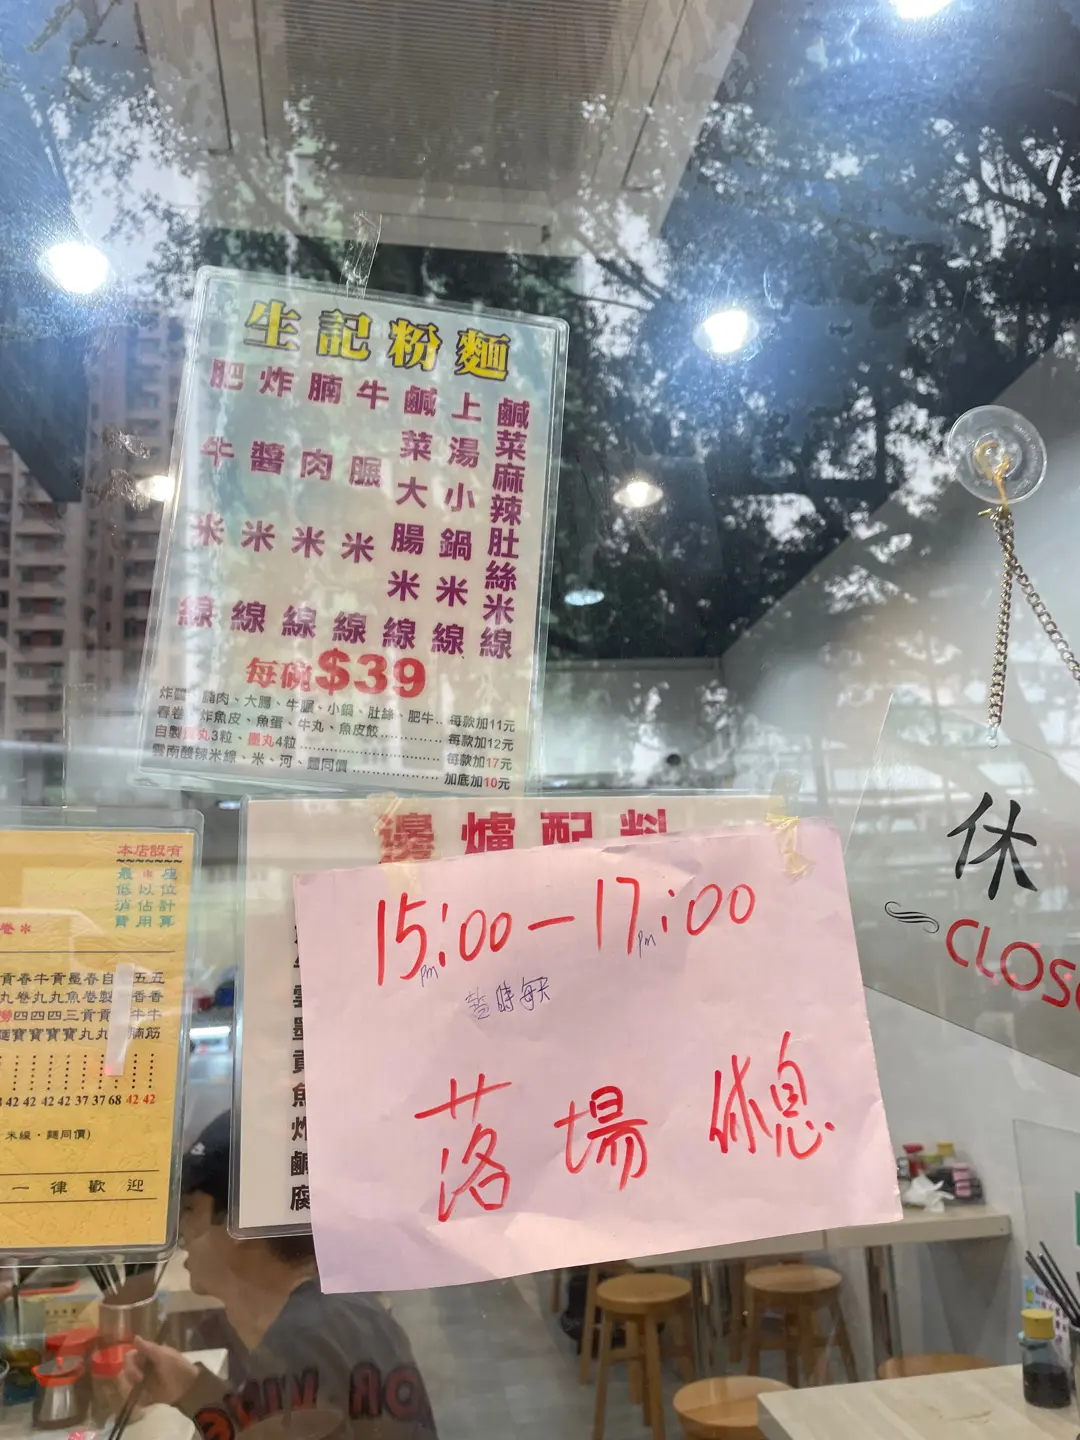 生記粉麵
鹹菜麻辣肚絲米線
上湯小鍋米線
鹹菜大腸米線
牛𦟌米線
腩肉米線
炸醬米線
肥牛米線
每碗$39
腩肉、大腸、牛𦟌、小鍋、肚絲、肥牛..每款加11元
春卷、炸魚皮、魚蛋、牛丸、魚皮餃..........每款加12元
自製貢丸3粒、墨丸4粒..........每款加17元
雲南酸辣米線、米、河、麵同價..........加底加10元
邊爐配料
15:00-17:00
pm pm
暫時每天
落場休息
休
CLOS
本店設有
最*座
低以位
消佔計
費用算
卷*
42 42 42 42 37 37 68 42 42
米線·麵同價)
一律歡迎